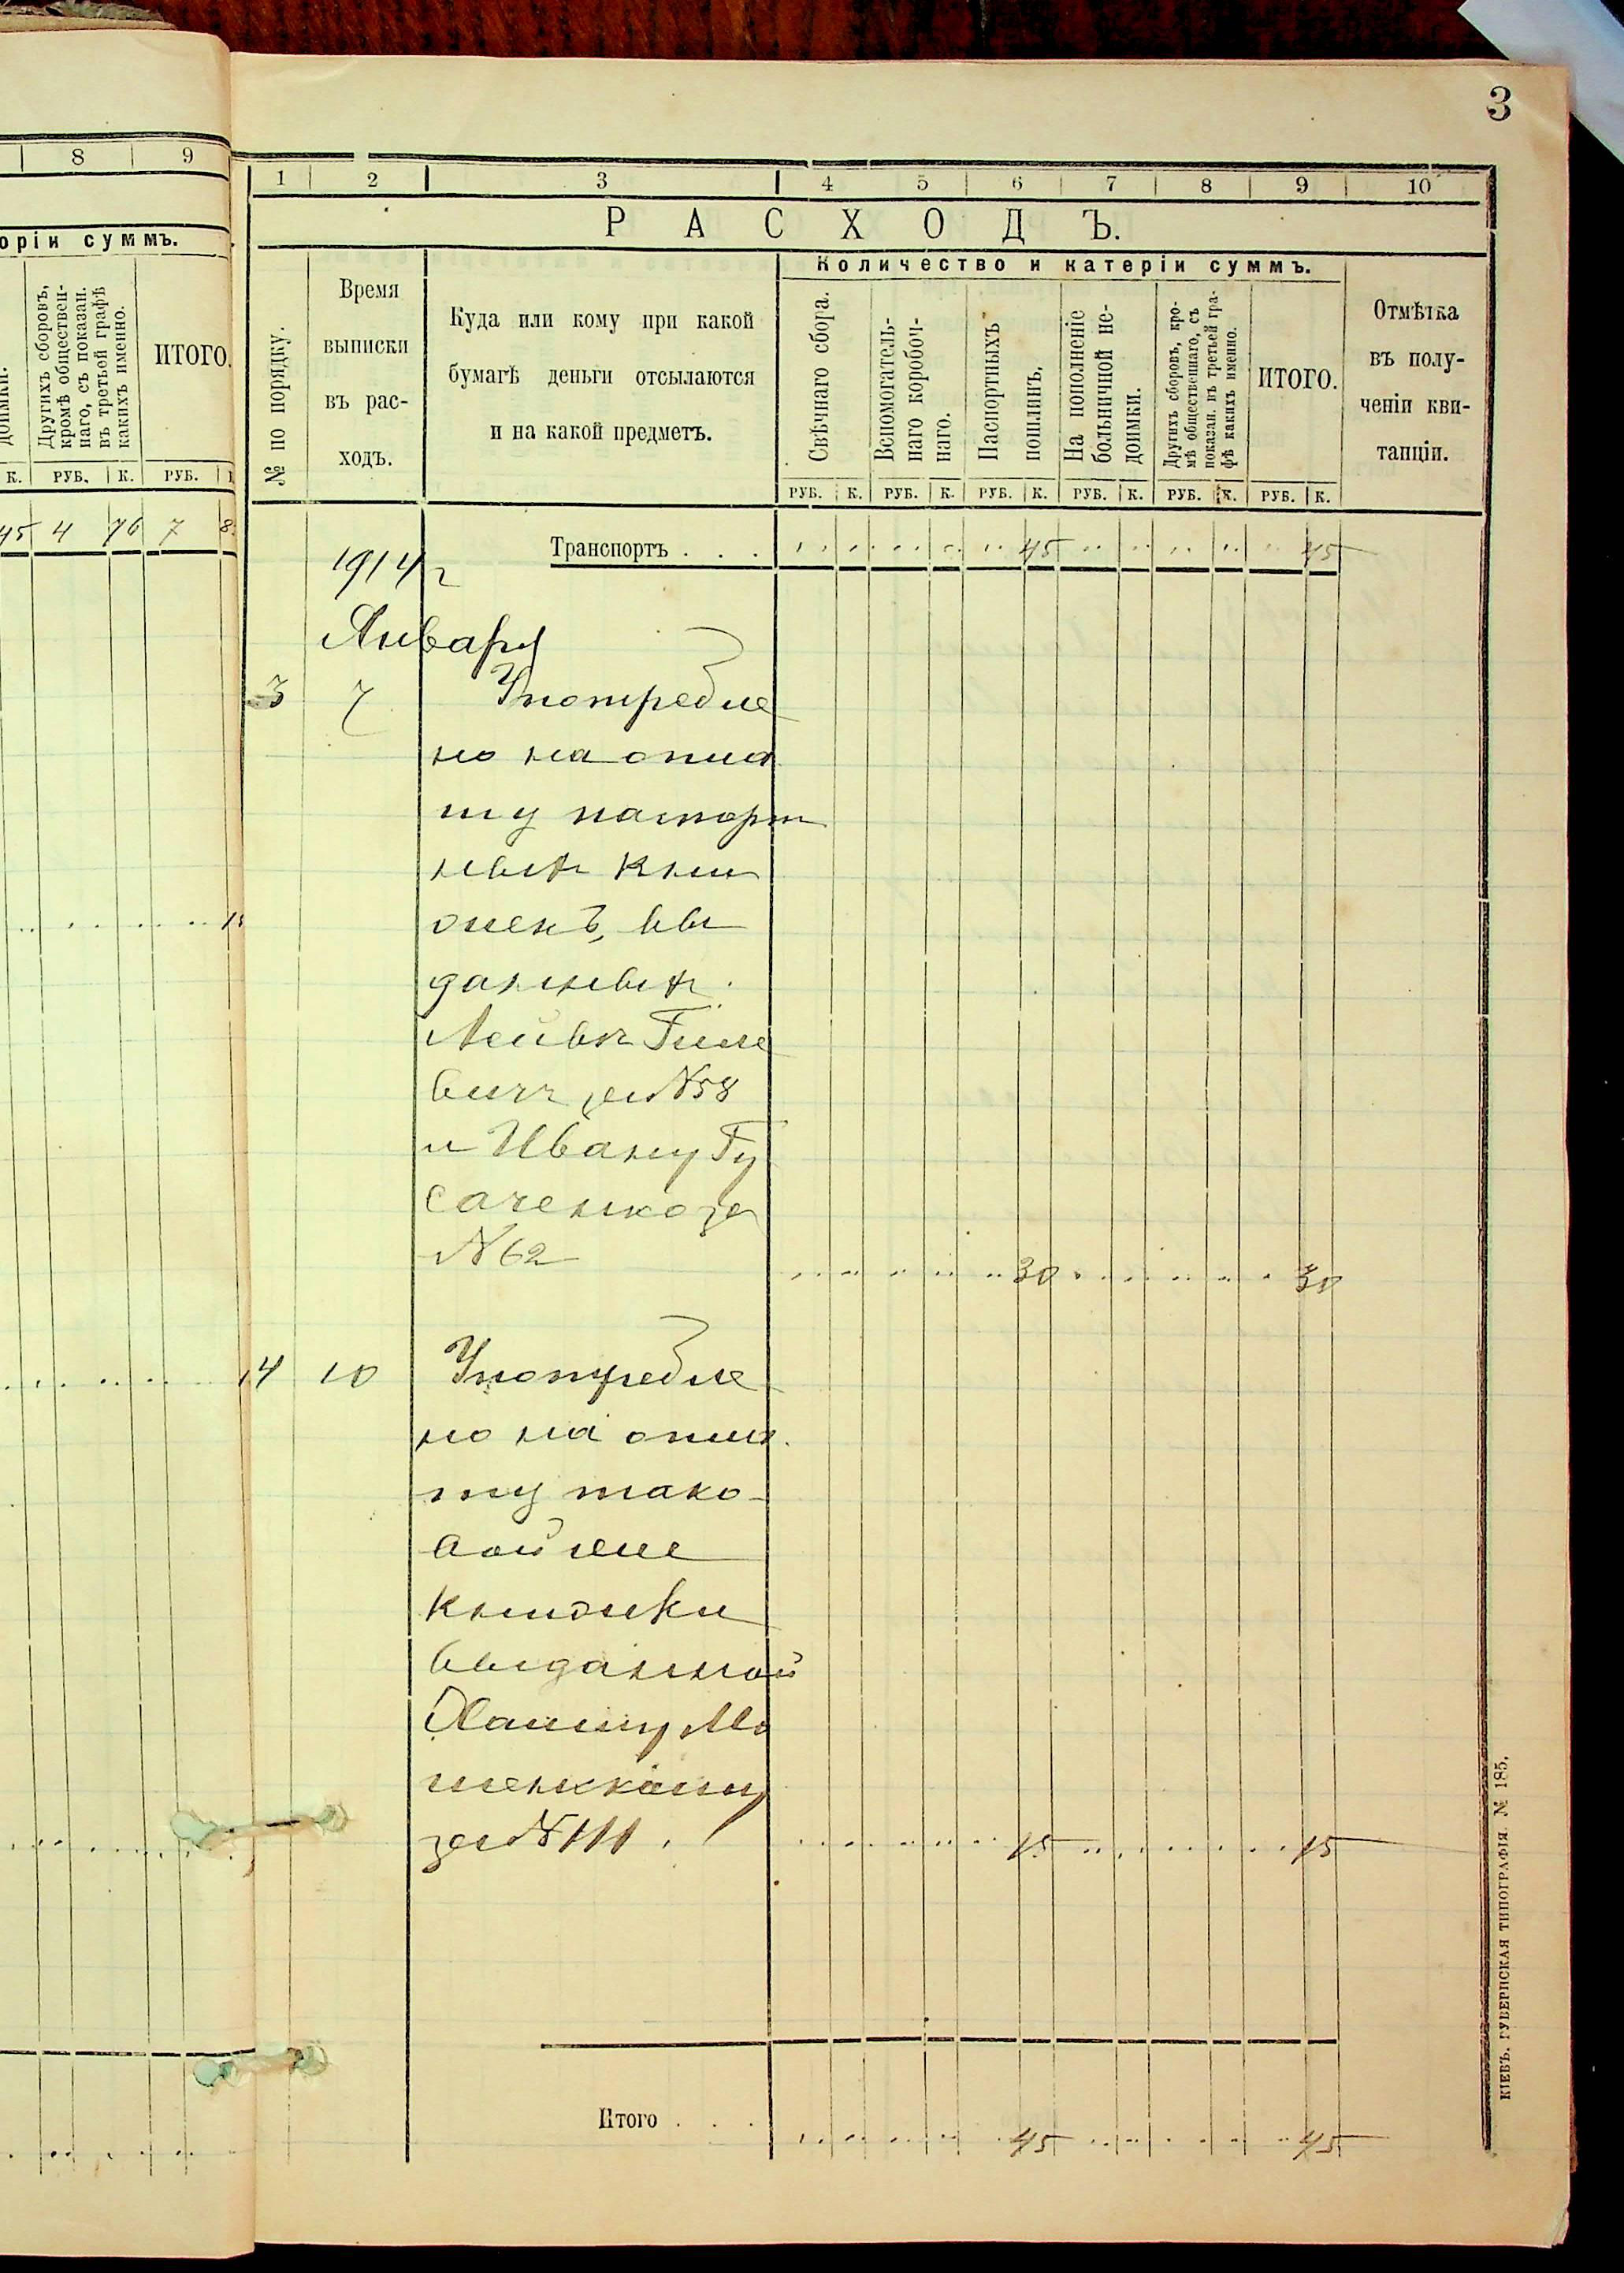 3
8 9
оріи суммъ.
доимки.
Другихъ сборовъ,
кромѣ обществен-
наго, съ показан.
въ третьей графѣ
какихъ именно.
ИТОГО.
К. РУБ. К. РУБ.
45 4 76 7 8
1 2 3 4 5 6 7 8 9 10
РАСХОДЪ.
Количество и катеріи суммъ.
№ по порядку.
Время
выписки
въ рас-
ходъ.
Куда или кому при какой
бумагѣ деньги отсылаются
и на какой предметъ.
Свѣчнаго сбора.
Вспомогатель-
наго коробоч-
наго.
Паспортныхъ
пошлинъ.
На пополненіе
больничной не-
доимки.
Другихъ сборовъ, кро-
мѣ общественнаго, съ
показан. въ третьей гра-
фѣ какихъ именно.
ИТОГО.
Отмѣтка
въ полу-
ченіи кви-
танціи.
РУБ. К. РУБ. К. РУБ. К. РУБ. К. РУБ. К. РУБ. К.
Транспортъ . . . 45 45
1914 г
Января
3 7 Употребле
но на опла
ту паспорт
ныхъ кни
жекъ, вы
данныхъ
Лейбѣ
за №58
и Ивану Гу
саченко за
№ 62 30 30
4 10 Употребле
но на опла
ту тако-
вой же
книжки
выданной
за № 111. 15 15
Итого . . . 45 45
КІЕВЪ. ГУБЕРНСКАЯ ТИПОГРАФІЯ. № 185.